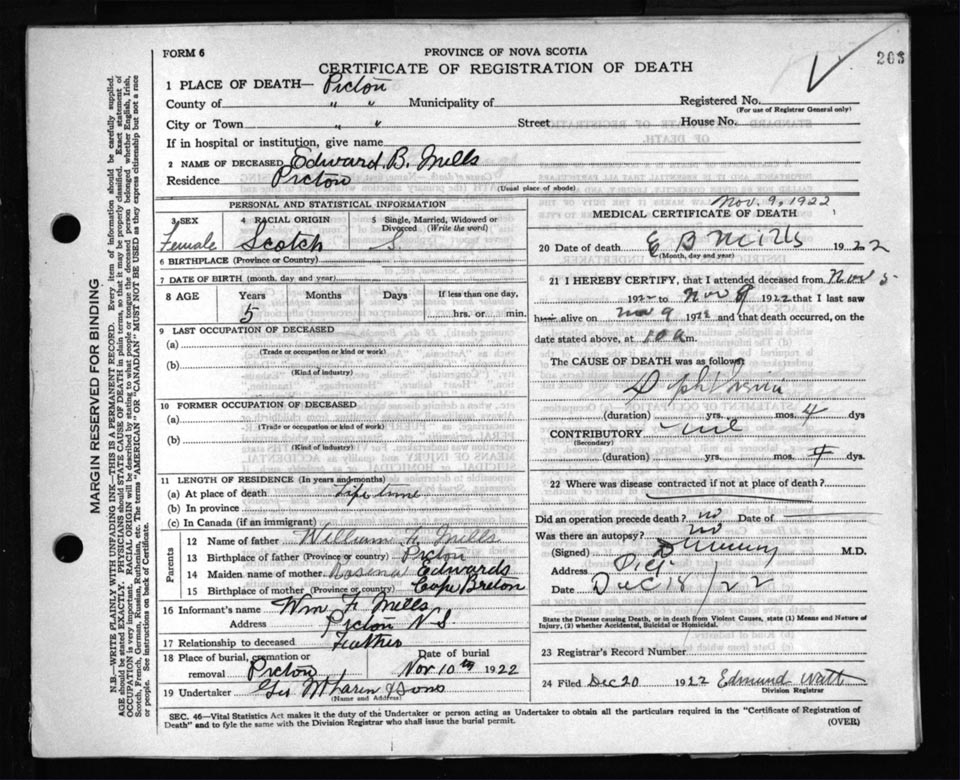 FORM 6
PROVINCE OF NOVA SCOTIA
CERTIFICATE OF REGISTRATION OF DEATH
263
1 PLACE OF DEATH— Pictou
County of " " Municipality of Registered No.
(For use of Registrar General only)
City or Town " " Street House No.
If in hospital or institution, give name
2 NAME OF DECEASED Edward B. Mills
Residence Pictou
(Usual place of abode)
PERSONAL AND STATISTICAL INFORMATION
3 SEX Female
4 RACIAL ORIGIN Scotch
5 Single, Married, Widowed or Divorced (Write the word) S.
6 BIRTHPLACE (Province or Country)
7 DATE OF BIRTH (month, day and year)
8 AGE Years Months Days If less than one day,
5 hrs. or min.
9 LAST OCCUPATION OF DECEASED
(a)
(Trade or occupation or kind or work)
(b)
(Kind of industry)
10 FORMER OCCUPATION OF DECEASED
(a)
(Trade or occupation or kind of work)
(b)
(Kind of industry)
11 LENGTH OF RESIDENCE (In years and months)
(a) At place of death Life time
(b) In province
(c) In Canada (if an immigrant)
Parents
12 Name of father William F. Mills
13 Birthplace of father (Province or country) Pictou
14 Maiden name of mother Rosena Edwards
15 Birthplace of mother (Province or country) Cape Breton
16 Informant's name Wm F. Mills
Address Pictou N S.
17 Relationship to deceased Father
18 Place of burial, cremation or removal Pictou
Date of burial Nov 10th 1922
19 Undertaker Geo McLaren & Sons
(Name and Address)
Nov. 9, 1922
MEDICAL CERTIFICATE OF DEATH
20 Date of death E B Mills 1922
(Month, day and year)
21 I HEREBY CERTIFY, that I attended deceased from Nov 5
1922 to Nov 9 1922 that I last saw
him alive on Nov 9 1922 and that death occurred, on the
date stated above, at 10 a m.
The CAUSE OF DEATH was as follows:
Diphtheria
(duration) yrs. mos. 4 dys
CONTRIBUTORY nil
(Secondary)
(duration) yrs. mos. 4 dys.
22 Where was disease contracted if not at place of death?
Did an operation precede death? no Date of
Was there an autopsy? no
(Signed) M.D.
Address Pict
Date Dec 18/22
State the Disease causing Death, or in death from Violent Causes, state (1) Means and Nature of
Injury, (2) whether Accidental, Suicidal or Homicidal.
23 Registrar's Record Number
24 Filed Dec 20 1922 Edmund Watt
Division Registrar
SEC. 46—Vital Statistics Act makes it the duty of the Undertaker or person acting as Undertaker to obtain all the particulars required in the "Certificate of Registration of
Death" and to fyle the same with the Division Registrar who shall issue the burial permit.
(OVER)
MARGIN RESERVED FOR BINDING
N.B.—WRITE PLAINLY WITH UNFADING INK—THIS IS A PERMANENT RECORD. Every item of information should be carefully supplied.
AGE should be stated EXACTLY. PHYSICIANS should STATE CAUSE OF DEATH in plain terms, so that it may be properly classified. Exact statement of
OCCUPATION is very important. RACIAL ORIGIN will be described by stating to what people or tongue the deceased person belonged whether English, Irish,
Scotch, French, German, Russian, Ruthenian, etc. The terms "AMERICAN" or "CANADIAN" MUST NOT BE USED as they express citizenship but not a race
or people. See instructions on back of Certificate.